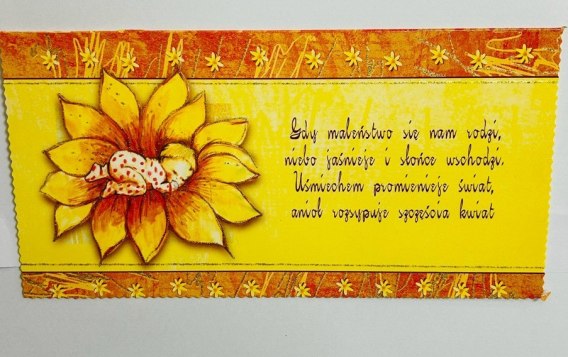 Gdy maleństwo się nam rodzi,
niebo jaśnieje i słońce wschodzi.
Uśmiechem promienieje świat,
anioł rozsypuje szczęścia kwiat